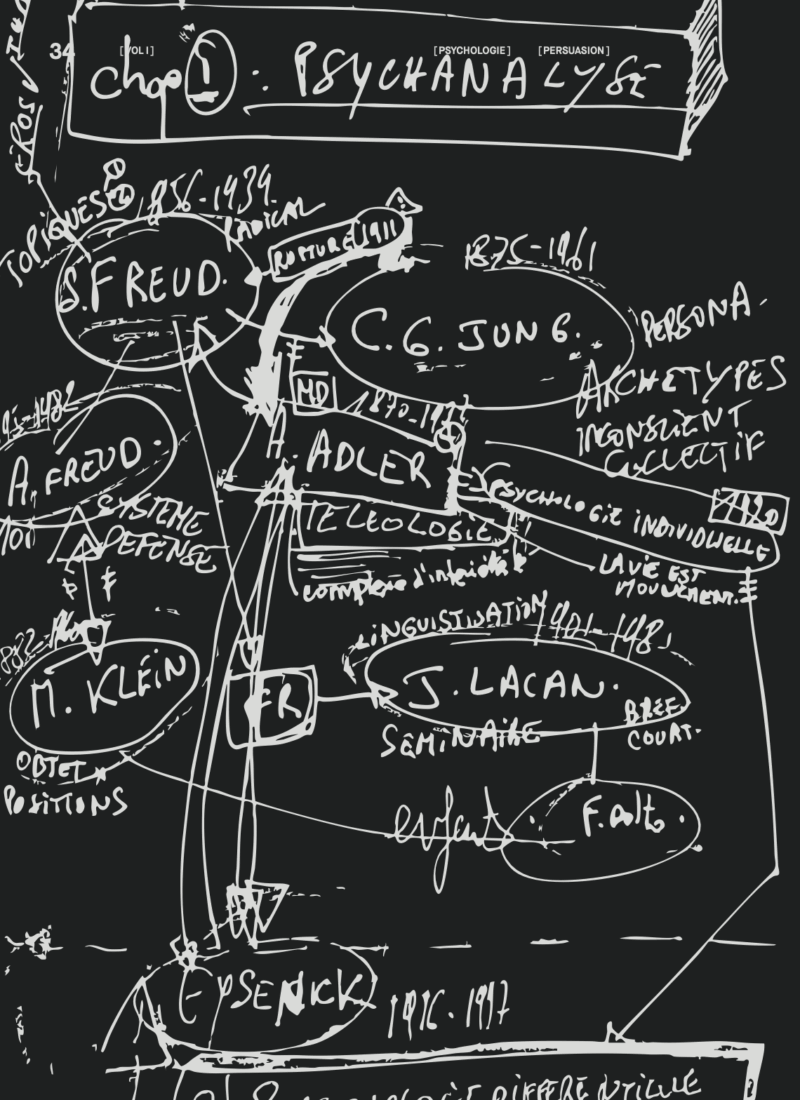 34
[VOL I]
[PSYCHOLOGIE] [PERSUASION]
chap 1 : PSYCHANALYSE
EROS
TOPIQUES
1856-1939
RADICAL
S. FREUD.
RUPTURE 1911
1875-1961
C. G. JUNG.
PERSONA.
ARCHETYPES
INCONSCIENT
COLLECTIF
MD
A. ADLER
TELEOLOGIE
PSYCHOLOGIE INDIVIDUELLE
LA VIE EST
MOUVEMENT.
A. FREUD.
SYSTEME
DEFENSE
M. KLEIN
OBJET
POSITIONS
LINGUISTISATION
1901-1981
FR
J. LACAN.
SEMINAIRE
COURT.
enfants
F. Dolto.
EYSENCK
1916-1997
DIFFERENTIELLE